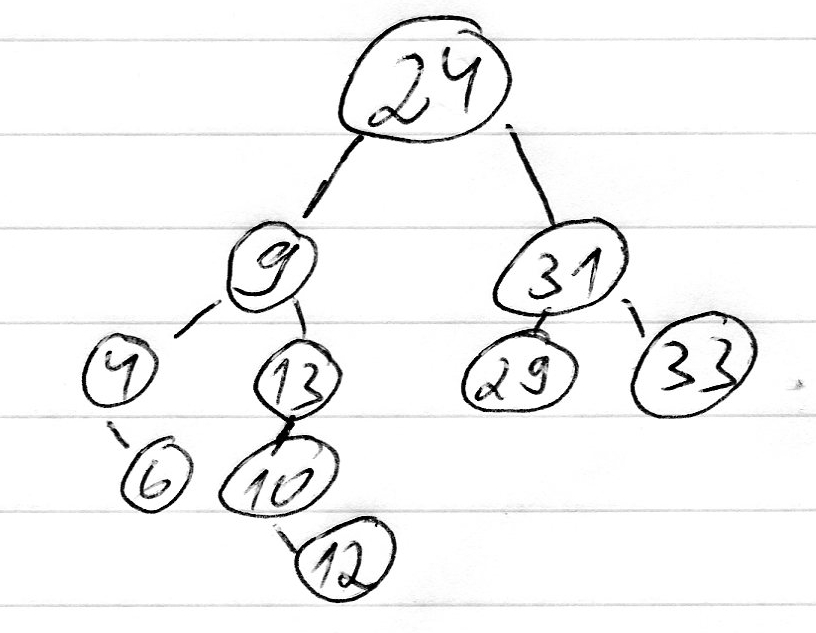 24
9 31
4 13 29 33
6 10
12